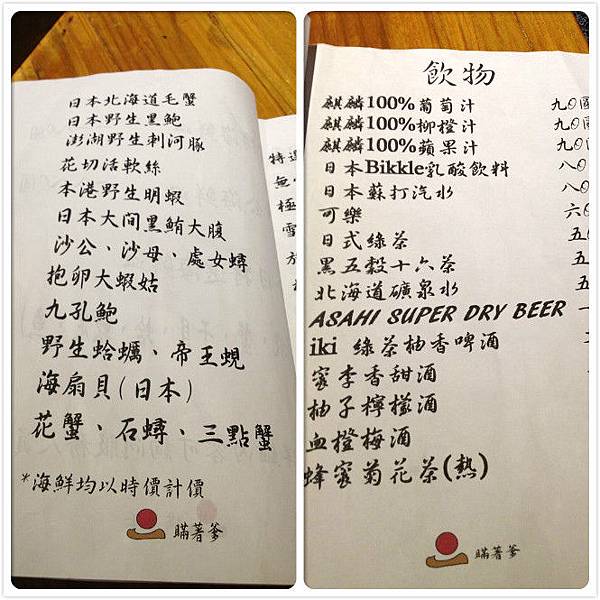 日本北海道毛蟹
日本野生黑鮑
澎湖野生刺河豚
花切活軟絲
本港野生明蝦
日本大間黑鮪大腹
沙公、沙母、處女蟳
抱卵大蝦姑
九孔鮑
野生蛤蠣、帝王蜆
海扇貝(日本)
花蟹、石蟳、三點蟹
*海鮮均以時價計價
瞞著爹
特選
無
極
雪
飲物
麒麟100%葡萄汁 九0
麒麟100%柳橙汁 九0
麒麟100%蘋果汁 九0
日本Bikkle乳酸飲料 八0
日本蘇打汽水 八0
可樂 六0
日式綠茶 五
黑五穀十六茶 五
北海道礦泉水 五
ASAHI SUPER DRY BEER 一
iki 綠茶柚香啤酒
蜜李香甜酒
柚子檸檬酒
血橙梅酒
蜂蜜菊花茶(熱)
瞞著爹